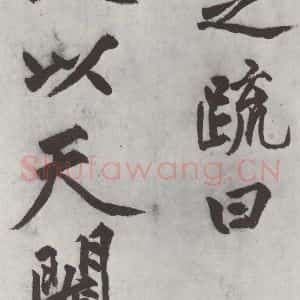 之疏曰
以天
Shufawang.CN